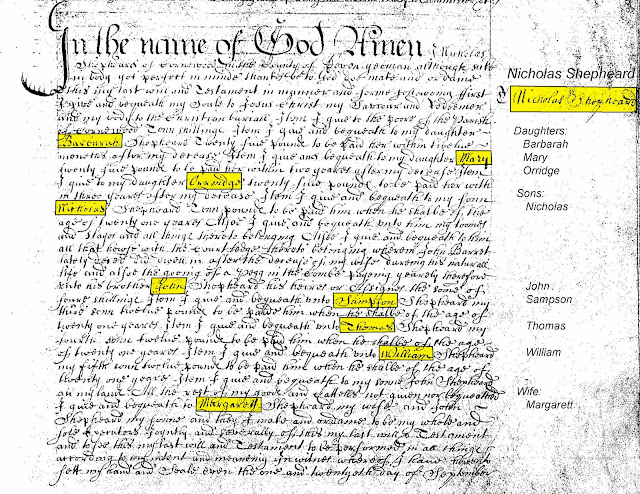 In the name of God Amen I Nicholas
Shepheard of Cornewood in the County of Devon yeoman although sicke
in body yet perfect in minde thankes be to God doe make and ordaine
this my last will and Testament in manner and forme following first
I give and bequeath my Soule to Jesus Christ my Saviour and Redeemer
and my body to the Christian buriall Item I give to the poore of the Parish
of Cornewood Tenn shillinge Item I give and bequeath to my daughter
Barbarah Shepheard Twenty five pound to be paid her within twelve
moneths after my decease Item I give and bequeath to my daughter Mary
twenty five pound to be paid her within two yeares after my decease Item
I give to my daughter Orridge twenty five pound to be paid her with
in three yeares after my decease Item I give and bequeath to my sonn
Nicholas Shepheard Tenn pound to be paid him when he shalbe of the
age of twenty one yeares Alsoe I give and bequeath unto him my
and and all things thereto belonging Alsoe I give and bequeath to him
all that howse with the Court ledge thereto belonging wherein John Barret
lately did dwell in after the decease of my wife dureing his naturall
life and alsoe the goeing of a pigg in the paying yearely therefore
unto his brother John Shepheard his heires or assignes the some of
foure shillinge Item I give and bequeath unto Sampson Shepheard my
third sonn twelve pound to be paide him when he shalbe of the age of
twenty one yeares Item I give and bequeath unto Thomas Shepheard my
fourth sonn twelve pound to be paid him when he shalbe of the age
of twenty one yeares Item I give and bequeath unto William Shepheard
my fifth sonn twelve pound to be paid him when he shalbe of the age of
twenty one yeares Item I give and bequeath to my sonne John Shepheard
all my land All the rest of my goods and Cattles not given nor bequeathed
I give and bequeath to Margarett Shepheard my wife and John
Shepheard my sonne and they I make and ordaine to be my whole and
sole Executors joyntly and severally of this my last will & Testament
and to see this my last will and Testament to be performed in all things
according to my intent and meaneing in witnes whereof I have hereunto
sett my hand and Seale even the one and twentyeth day of September
Nicholas Shepheard
Nicholas Shepheard
Daughters:
Barbarah
Mary
Orridge
Sons:
Nicholas
John
Sampson
Thomas
William
Wife:
Margarett